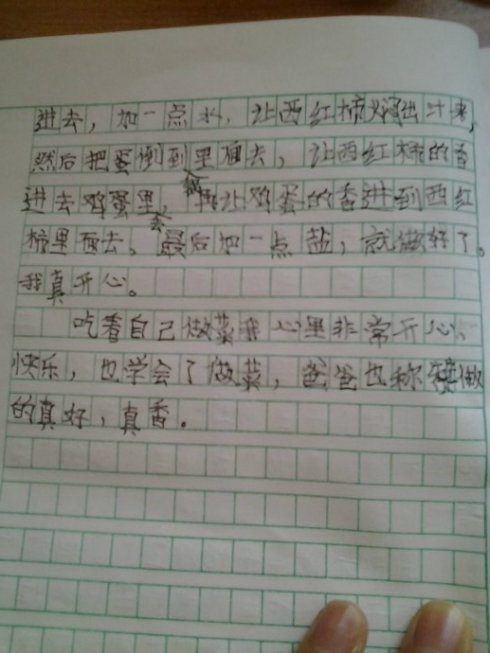 进去，加一点水，让西红柿焖出汁来，
然后把蛋倒到里面去，让西红柿的香
进去鸡蛋里，再让鸡蛋的香进到西红
柿里面去。最后加一点盐，就做好了。
我真开心。
吃着自己做菜我心里非常开心、
快乐，也学会了做菜，爸爸也称赞做
的真好，真香。